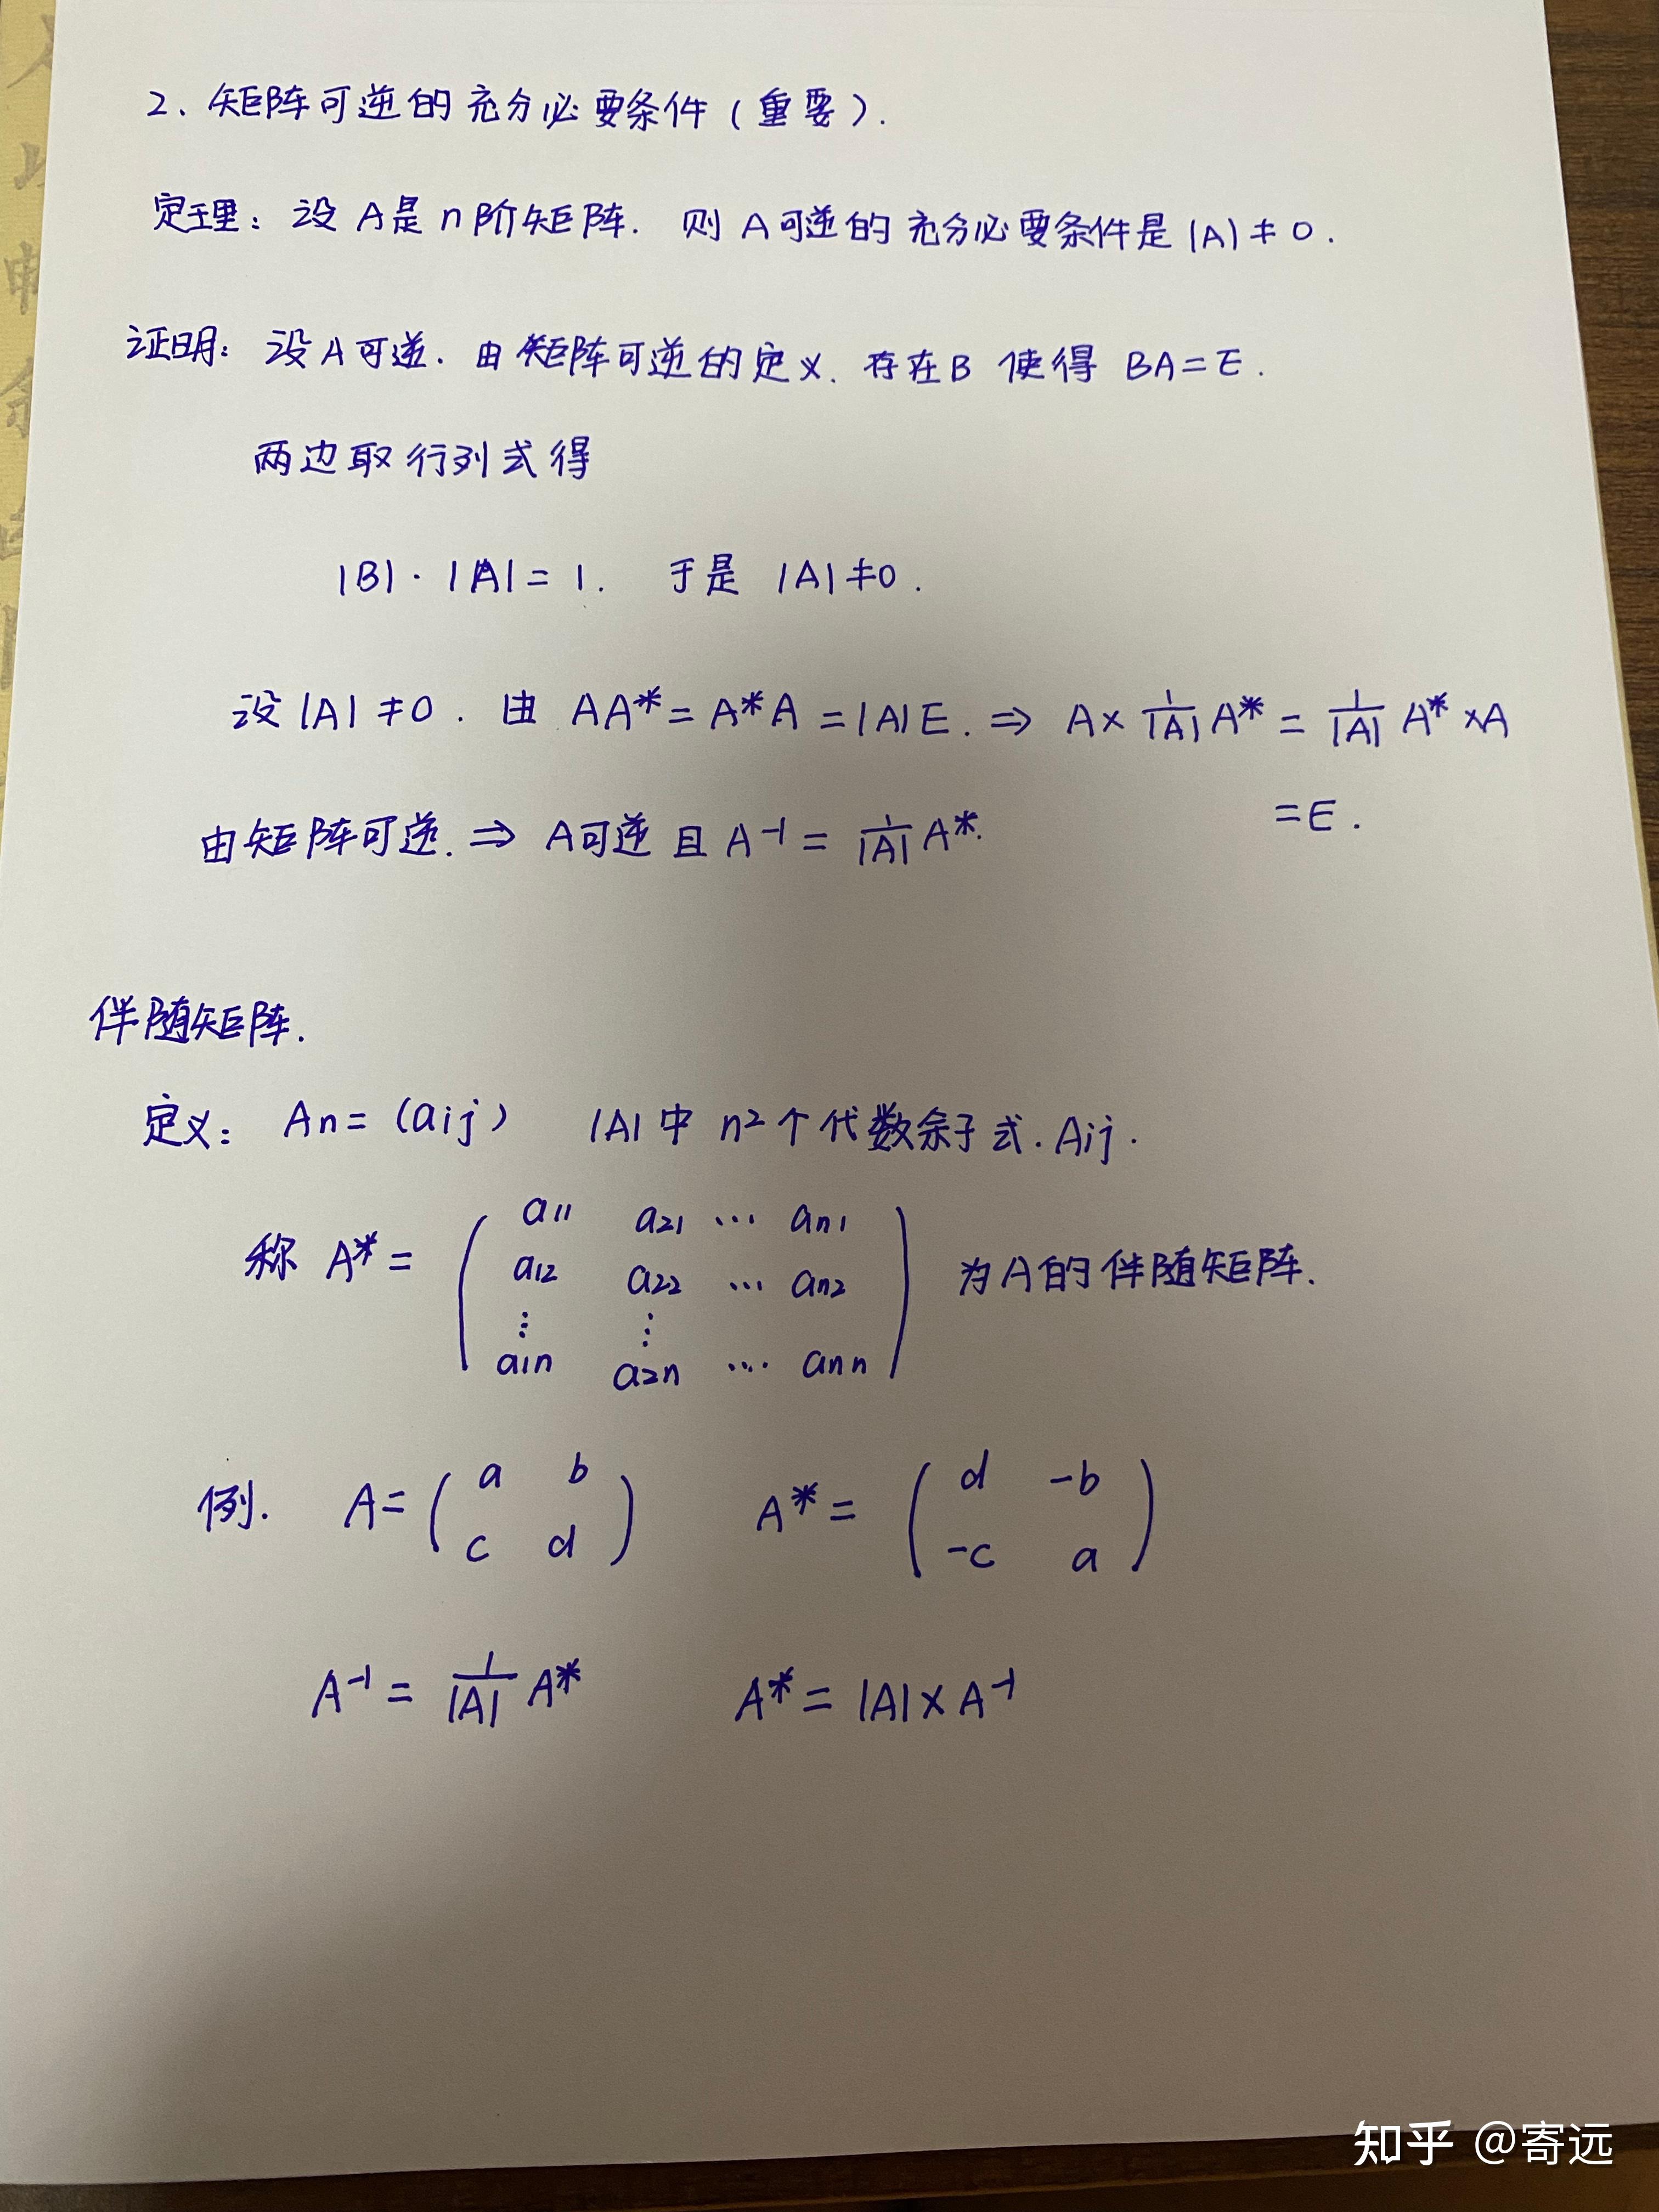 2、矩阵可逆的充分必要条件(重要).
定理: 设 A是 n阶矩阵. 则 A可逆的充分必要条件是 |A| ≠ 0.
证明: 设A可逆. 由矩阵可逆的定义. 存在B 使得 BA=E.
两边取行列式得
|B|·|A| = 1. 于是 |A|≠0.
设|A|≠0. 由 AA* = A*A = |A|E. ⇒ A× 1/|A| A* = 1/|A| A* ×A
=E.
由矩阵可逆. ⇒ A可逆且 A⁻¹ = 1/|A| A*.
伴随矩阵.
定义: An=(aij) |A|中 n²个代数余子式. Aij.
称 A* = ( a11 a21 … an1
a12 a22 … an2
⋮ ⋮
a1n a2n … ann ) 为A的伴随矩阵.
例. A= ( a b A* = ( d -b
c d ) -c a )
A⁻¹ = 1/|A| A* A* = |A|×A⁻¹
知乎 @寄远